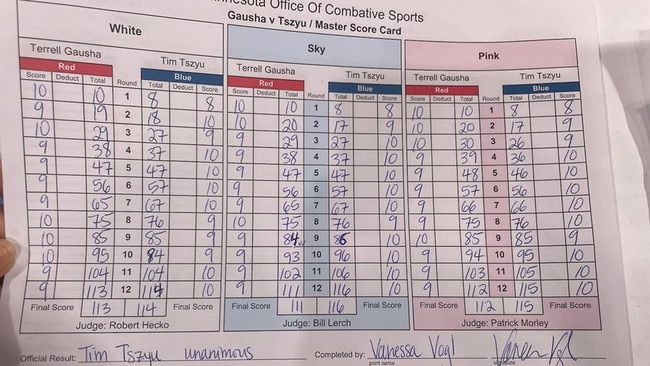 Minnesota Office Of Combative Sports
Gausha v Tszyu / Master Score Card
White Sky Pink
Terrell Gausha Tim Tszyu Terrell Gausha Tim Tszyu Terrell Gausha Tim Tszyu
Red Blue Red Blue Red Blue
Score Deduct Total Round Total Deduct Score Score Deduct Total Round Total Deduct Score Score Deduct Total Round Total Deduct Score
10 10 1 8 8 10 10 1 8 8 10 10 1 8 8
9 19 2 18 10 10 20 2 17 9 10 20 2 17 9
10 29 3 27 9 9 29 3 27 10 10 30 3 26 9
9 38 4 37 10 9 38 4 37 10 9 39 4 36 10
9 47 5 47 10 9 47 5 47 10 9 48 5 46 10
9 56 6 57 10 9 56 6 57 10 9 57 6 56 10
9 65 7 67 10 9 65 7 67 10 9 66 7 66 10
10 75 8 76 9 10 75 8 76 9 9 75 8 76 10
10 85 9 85 9 9 84 9 86 10 10 85 9 85 9
10 95 10 94 9 9 93 10 96 10 9 94 10 95 10
9 104 11 104 10 9 102 11 106 10 9 103 11 105 10
9 113 12 114 10 9 111 12 116 10 9 112 12 115 10
Final Score 113 114 Final Score Final Score 111 116 Final Score Final Score 112 115 Final Score
Judge: Robert Hecko Judge: Bill Lerch Judge: Patrick Morley
Official Result: Tim Tszyu unanimous Completed by: Vanessa Vogl
print name signature